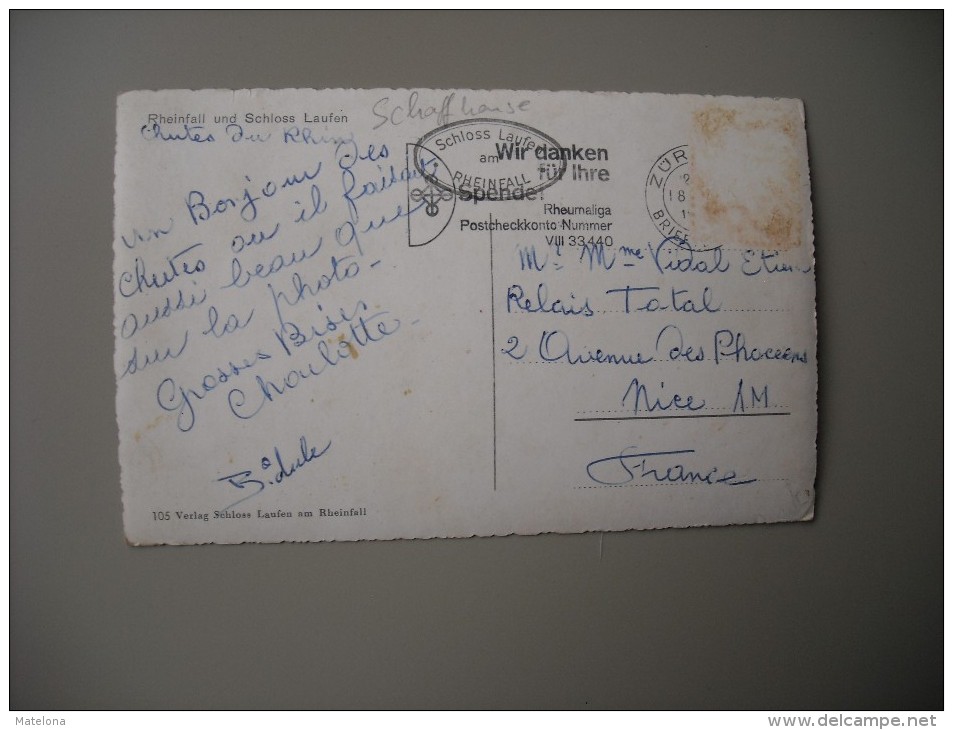 Rheinfall und Schloss Laufen
Schaffhouse
Chutes du Rhin
un Bonjour des
Chutes ou il faisait
aussi beau que
sur la photo-
Grosses Bises
Charlotte-
105 Verlag Schloss Laufen am Rheinfall
Schloss Laufen
am
RHEINFALL
Wir danken
für Ihre
Spende!
Rheumaliga
Postcheckkonto Nummer
VIII 33440
ZÜR
18
BRIEF
Mr Mme Vidal Etien
Relais Total
2 Avenue des Phoceens
Nice AM
France
Matelona
www.delcampe.net